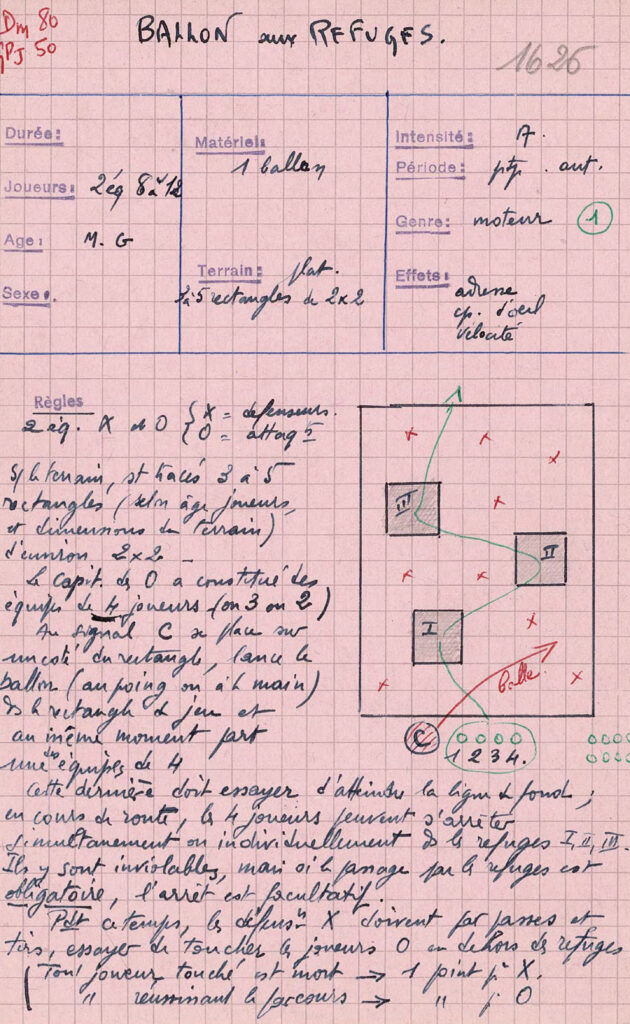 Dm 80
PJ 50
BALLON aux REFUGES.
1626
Durée:
Joueurs: 2 éq 8 à 12
Age: M. G
Sexe:
Matériel:
1 ballon
Terrain: plat.
3 à 5 rectangles de 2x2
Intensité: A.
Période: ptps. aut.
Genre: moteur 1
Effets:
adresse
cp. d'oeil
vélocité
Règles
2 éq. X et O { X = défenseurs.
O = attaqts
S/ le terrain, st tracés 3 à 5
rectangles (selon âge joueurs,
et dimensions du terrain)
d'environ 2x2 –
Le capit. des O a constitué des
équipes de 4 joueurs (ou 3 ou 2)
Au signal C se place sur
un coté du rectangle, lance le
ballon (au poing ou à la main)
ds le rectangle de jeu et
au même moment part
une des équipes de 4
Cette dernière doit essayer d'atteindre la ligne de fond ;
en cours de route, les 4 joueurs peuvent s'arrêter
simultanement ou individuellement ds les refuges I, II, III.
Ils y sont inviolables, mais si le passage par le refuges est
obligatoire, l'arrêt est facultatif.
Pdt ce temps, les défensrs X doivent par passes et
tirs, essayer de toucher les joueurs O en dehors des refuges
Tout joueur touché est mort → 1 point pr X.
" réussissant le parcours → " pr O
III
II
I
Balle
C
1 2 3 4.